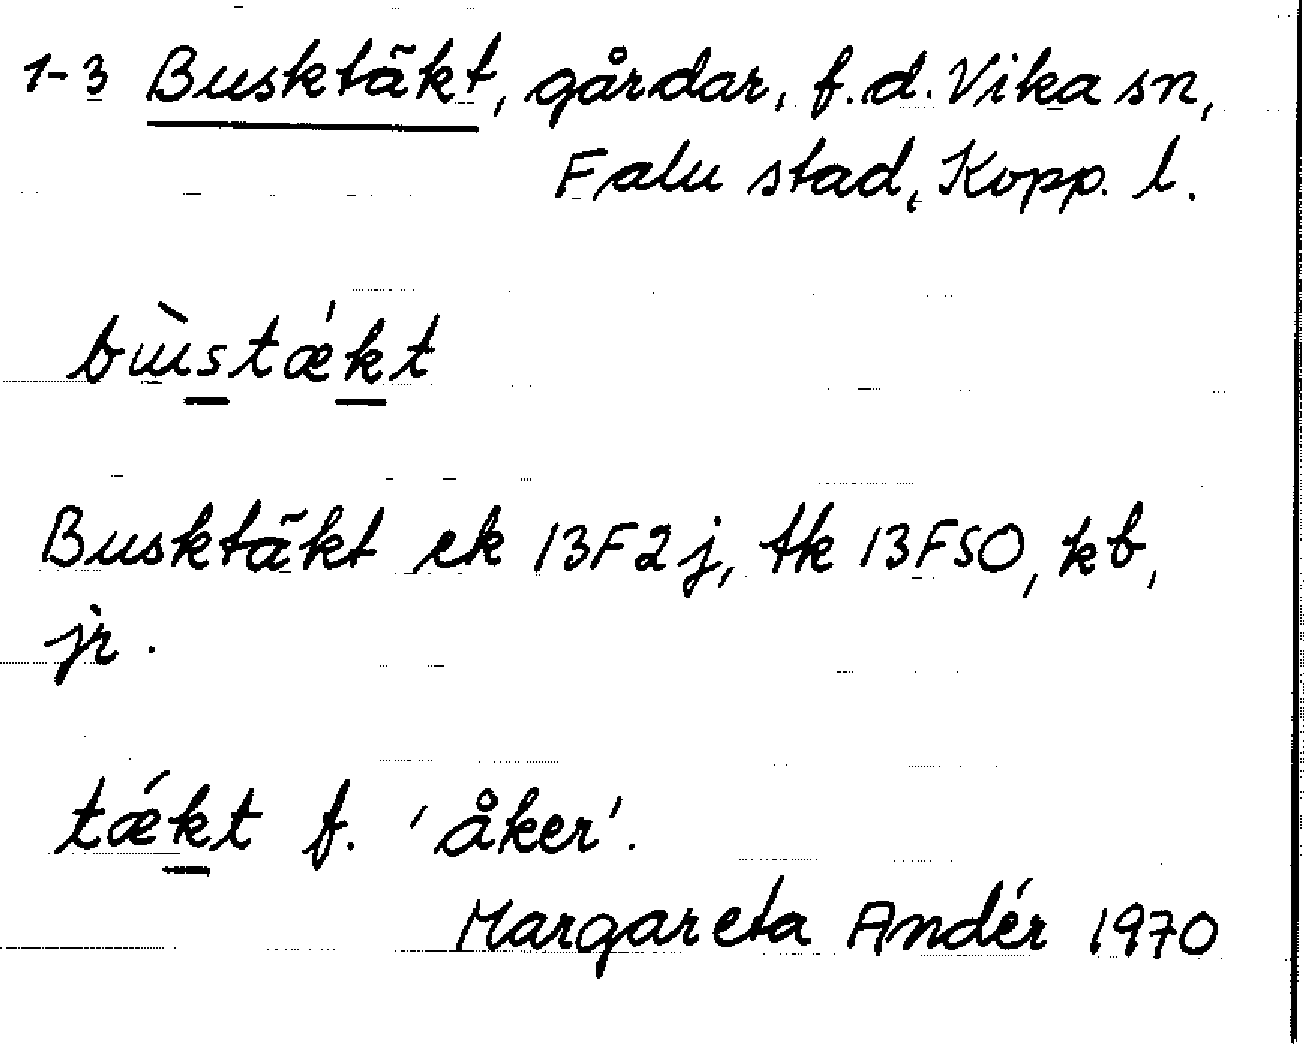 1-3 Busktäkt, gårdar, f.d. Vika sn,
Falu stad, Kopp. l.
bùstǽkt
Busktäkt ek 13F2j, tk 13F50, kb,
jr.
tǽkt f. 'åker'.
Margareta Andér 1970